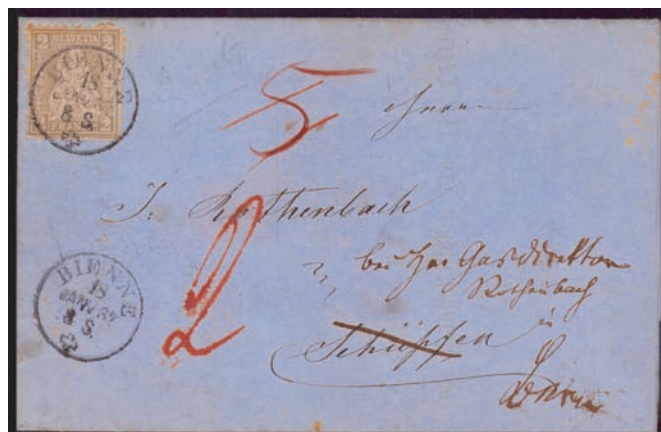 2 HELVETIA 2
BIENNE
18
JANV
8 S.
5
Herrn
J. Rothenbach
bei Hrn Gasdirektor
Rothenbach
in
Schüpfen
Bern
2
BIENNE
18
JANV
8 S.